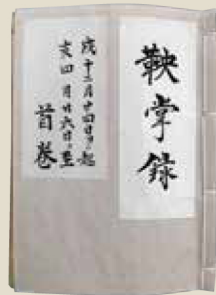 鞅掌録
戌十二月十四日ヨリ起
亥四月廿六日至
首巻